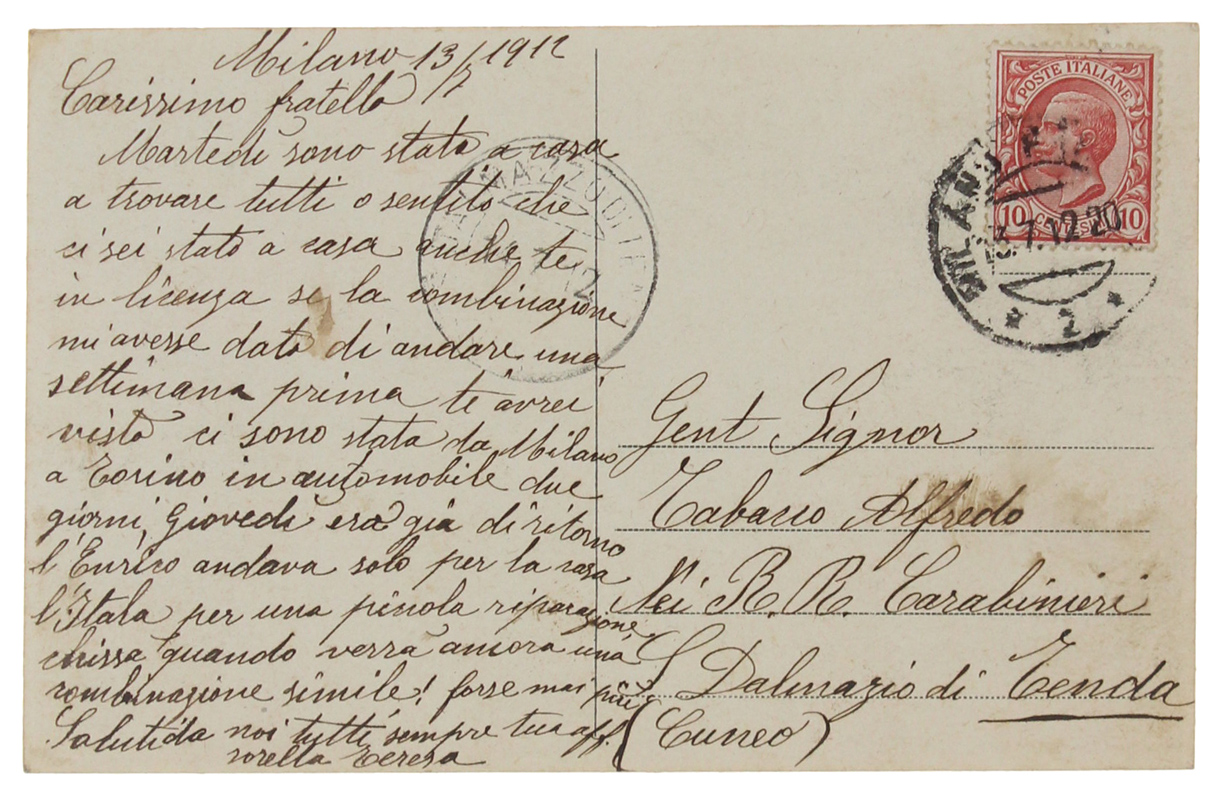 Milano 13/7 1912
Carissimo fratello
Martedi sono stata a casa
a trovare tutti o sentito che
ci sei stato a casa anche te
in licenza se la combinazione
mi avesse dato di andare una
settimana prima te avrei
visto ci sono stata da Milano
a Torino in automobile due
giorni, Giovedi era già di ritorno
l'Enrico andava solo per la casa
l'Itala per una picola riparazione
chissa quando verrà ancora una
combinazione simile! forse mai più
Saluti da noi tutti, sempre tua aff.
sorella Teresa
POSTE ITALIANE
10 CENTESIMI 10
MILANO
13.7.12.20
* 2 *
Gent Signor
Tabacco Alfredo
Nei R. R. Carabinieri
S Dalmazio di Tenda
(Cuneo)